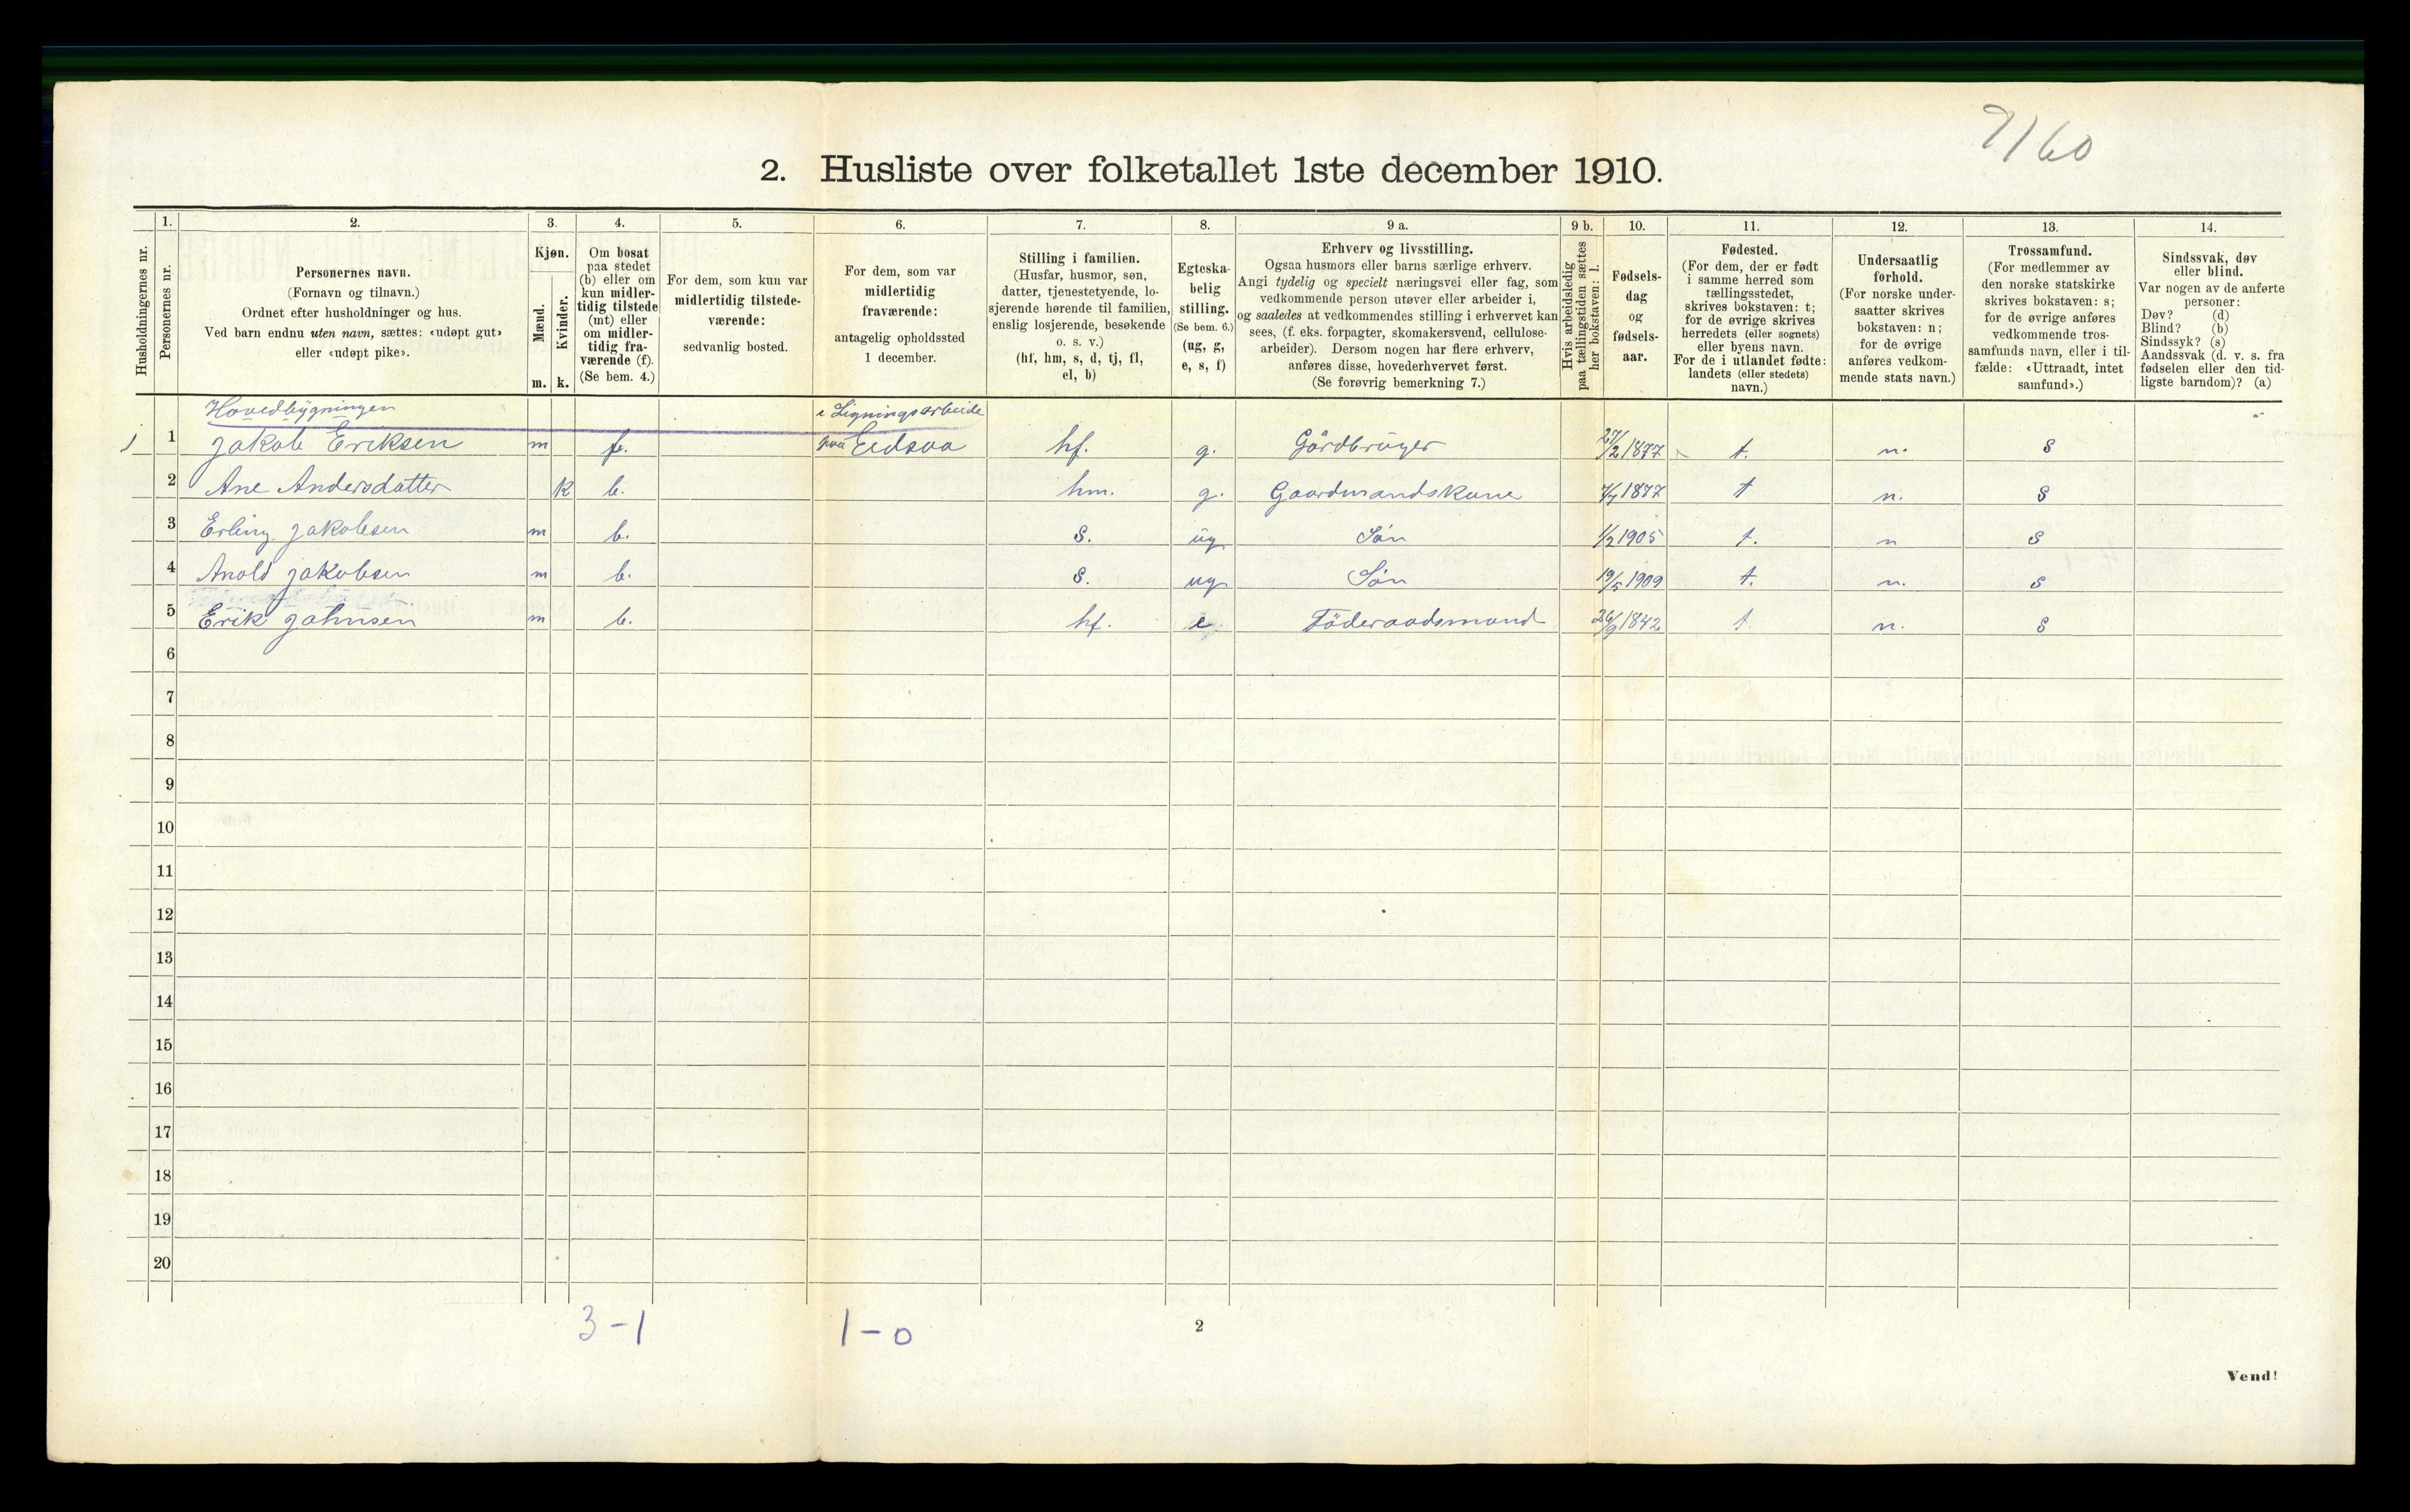 7160
2. Husliste over folketallet 1ste december 1910.
Husholdningernes nr.
1.
Personernes nr.
2.
Personernes navn.
(Fornavn og tilnavn.)
Ordnet efter husholdninger og hus.
Ved barn endnu uten navn, sættes: «udøpt gut»
eller «udøpt pike».
3.
Kjøn.
Mænd.
Kvinder.
m. k.
4.
Om bosat
paa stedet
(b) eller om
kun midler-
tidig tilstede
(mt) eller
om midler-
tidig fra-
værende (f).
(Se bem. 4.)
5.
For dem, som kun var
midlertidig tilstede-
værende:
sedvanlig bosted.
6.
For dem, som var
midlertidig
fraværende:
antagelig opholdssted
1 december.
7.
Stilling i familien.
(Husfar, husmor, søn,
datter, tjenestetyende, lo-
sjerende hørende til familien,
enslig losjerende, besøkende
o. s. v.)
(hf, hm, s, d, tj, fl,
el, b)
8.
Egteska-
belig
stilling.
(Se bem. 6.)
(ug, g,
e, s, f)
9 a.
Erhverv og livsstilling.
Ogsaa husmors eller barns særlige erhverv.
Angi tydelig og specielt næringsvei eller fag, som
vedkommende person utøver eller arbeider i,
og saaledes at vedkommendes stilling i erhvervet kan
sees, (f. eks. forpagter, skomakersvend, cellulose-
arbeider). Dersom nogen har flere erhverv,
anføres disse, hovederhvervet først.
(Se forøvrig bemerkning 7.)
9 b.
Hvis arbeidsledig
paa tællingstiden sættes
her bokstaven: l.
10.
Fødsels-
dag
og
fødsels-
aar.
11.
Fødested.
(For dem, der er født
i samme herred som
tællingsstedet,
skrives bokstaven: t;
for de øvrige skrives
herredets (eller sognets)
eller byens navn.
For de i utlandet fødte:
landets (eller stedets)
navn.)
12.
Undersaatlig
forhold.
(For norske under-
saatter skrives
bokstaven: n;
for de øvrige
anføres vedkom-
mende stats navn.)
13.
Trossamfund.
(For medlemmer av
den norske statskirke
skrives bokstaven: s;
for de øvrige anføres
vedkommende tros-
samfunds navn, eller i til-
fælde: «Uttraadt, intet
samfund».)
14.
Sindssvak, døv
eller blind.
Var nogen av de anførte
personer:
Døv? (d)
Blind? (b)
Sindssyk? (s)
Aandssvak (d. v. s. fra
fødselen eller den tid-
ligste barndom)? (a)
Hovedbygningen i Ligningsarbeide
1 1 Jakob Eriksen m f. paa Eidsaa hf. g. Gårdbruger 27/2 1877 t. n. s
2 Ane Andersdatter k b. hm. g. Gaardmandskone 7/7 1877 t n. s
3 Erling Jakobsen m b. s. ug Søn 1/2 1905 t. n s
4 Anold Jakobsen m b. s. ug Søn 19/5 1909 t. n. s
5 Erik Johnsen m b. hf. e Föderaadsmand 26/9 1842 t n. s
6
7
8
9
10
11
12
13
14
15
16
17
18
19
20
3-1 1-0
2
Vend!